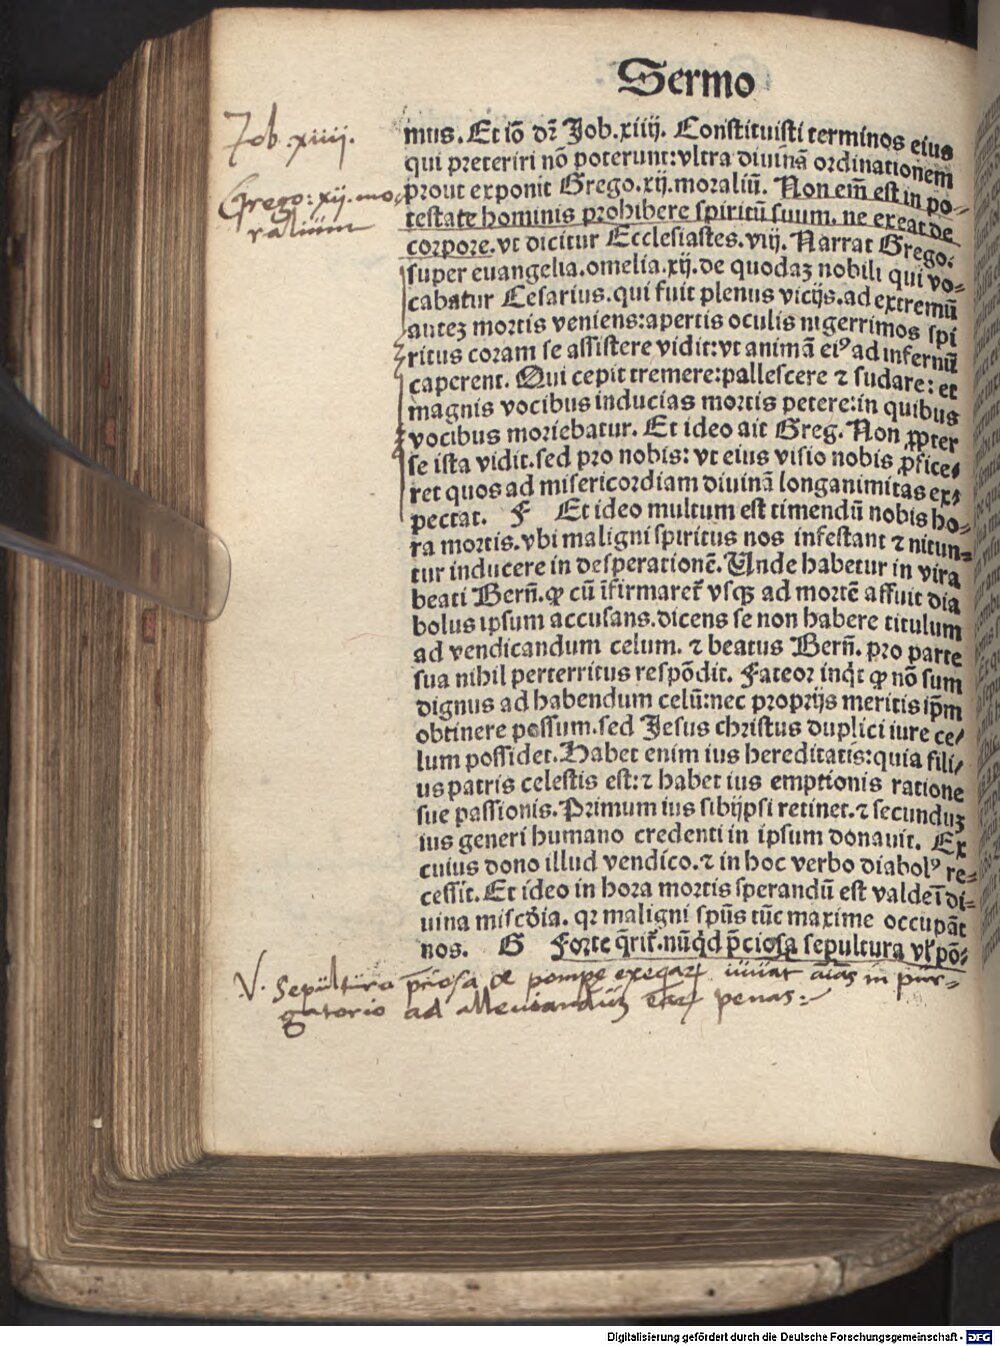 Sermo
Job .xiiij.
Grego: xij. mo
ralium
mus. Et iõ dꝛ Job.xiiij. Constituisti terminos eius
qui preteriri nõ poterunt: vltra diuinã ordinationem
prout exponit Grego.xij.moraliũ. Non em̃ est in po-
testate hominis prohibere spiritũ suum. ne exeat de
corpore. vt dicitur Ecclesiastes.viij. Narrat Grego.
super euangelia.omelia.xij.de quodaꝫ nobili qui vo-
cabatur Cesarius.qui fuit plenus vicijs.ad extremũ
auteꝫ mortis veniens: apertis oculis nigerrimos spi
ritus coram se assistere vidit: vt animã eiꝰ ad infernũ
caperent. Qui cepit tremere: pallescere ⁊ sudare: et
magnis vocibus inducias mortis petere: in quibus
vocibus moriebatur. Et ideo ait Greg. Non ꝓpter
se ista vidit.sed pro nobis: vt eius visio nobis ꝓfice-
ret quos ad misericordiam diuinã longanimitas ex-
pectat. F Et ideo multum est timendũ nobis ho-
ra mortis.vbi maligni spiritus nos infestant ⁊ nitun-
tur inducere in desperationẽ. Unde habetur in vita
beati Berñ. ꝙ cũ ĩfirmaret̃ vsqꝫ ad mortẽ affuit dia
bolus ipsum accusans.dicens se non habere titulum
ad vendicandum celum. ⁊ beatus Berñ. pro parte
sua nihil perterritus respõdit. Fateor inq̃t ꝙ nõ sum
dignus ad habendum celũ: nec proprijs meritis ip̃m
obtinere possum.sed Jesus christus duplici iure ce-
lum possidet. Habet enim ius hereditatis: quia fili-
us patris celestis est: ⁊ habet ius emptionis ratione
sue passionis. Primum ius sibijpsi retinet. ⁊ secunduꝫ
ius generi humano credenti in ipsum donauit. Ex
cuius dono illud vendico. ⁊ in hoc verbo diabolꝰ re-
cessit. Et ideo in hora mortis sperandũ est valde ĩ di-
uina misc̃dia. qꝛ maligni sp̃us tũc maxime occupãt
nos. G Forte q̃rit̃. nũq̃d p̃ciosa sepultura vl̃ põ-
V. Sepultura p̃tiosa & pompe exequiaꝝ iuuat aĩas in pur-
gatorio ad alleuianduꝫ eaꝝ penas:-
Digitalisierung gefördert durch die Deutsche Forschungsgemeinschaft - DFG